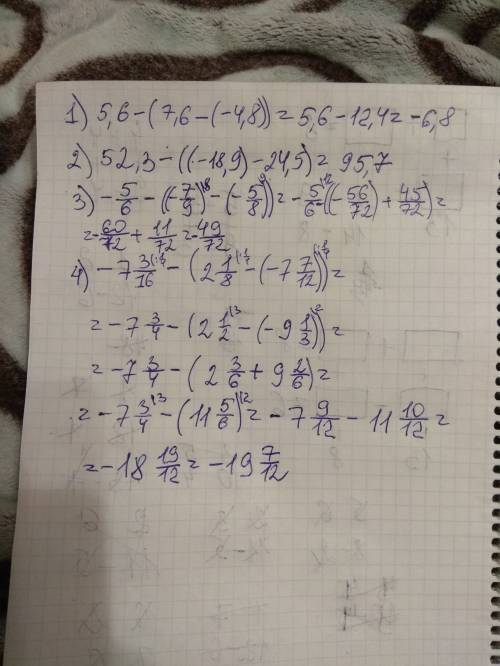 1) 5,6 - (7,6 - (-4,8)) = 5,6 - 12,4 = -6,8
2) 52,3 - ((-18,9) - 24,5) = 95,7
3) - 5/6 - ((-7/9)^(18 - (-5/8)^(9)) = - 5/6^(12 - ((-56/72) + 45/72) =
= -60/72 + 11/72 = -49/72
4) -7 3/16 - (2 1/8 - (-7 7/12)) =
= -7 3/4 - (2 1/2^(3 - (-9 1/3)^(2) =
= -7 3/4 - (2 3/6 + 9 2/6) =
= -7 3/4^(3 - (11 5/6)^(2 = -7 9/12 - 11 10/12 =
= -18 19/12 = -19 7/12